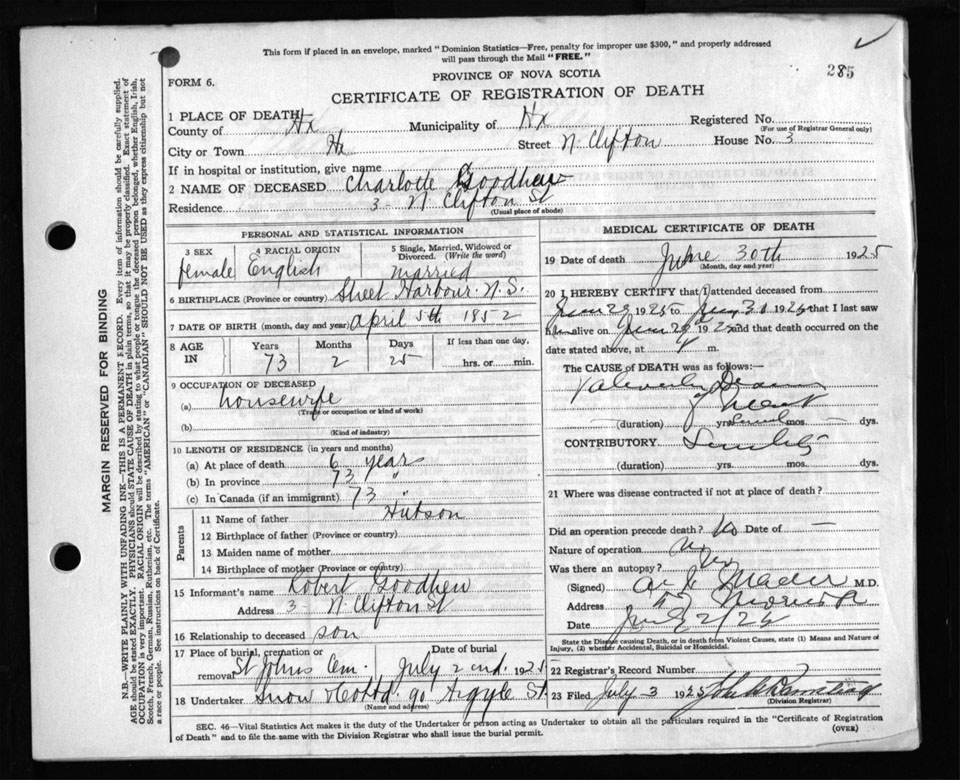 This form if placed in an envelope, marked "Dominion Statistics—Free, penalty for improper use $300," and properly addressed
will pass through the Mail "FREE."
285
FORM 6.
PROVINCE OF NOVA SCOTIA
CERTIFICATE OF REGISTRATION OF DEATH
MARGIN RESERVED FOR BINDING
N.B.—WRITE PLAINLY WITH UNFADING INK—THIS IS A PERMANENT RECORD. Every item of information should be carefully supplied.
AGE should be stated EXACTLY. PHYSICIANS should STATE CAUSE OF DEATH in plain terms, so that it may be properly classified. Exact statement of
OCCUPATION is very important. RACIAL ORIGIN will be described by stating to what people or tongue the deceased person belonged, whether English, Irish,
Scotch, French, German, Russian, Ruthenian, etc. The terms "AMERICAN" or "CANADIAN" SHOULD NOT BE USED as they express citizenship but not
a race or people. See instructions on back of Certificate.
1 PLACE OF DEATH
County of Hx Municipality of Hx Registered No.
(For use of Registrar General only)
City or Town Hx Street N. Clifton House No. 3
If in hospital or institution, give name
2 NAME OF DECEASED Charlotte Goodhew
Residence 3 - N Clifton St
(Usual place of abode)
PERSONAL AND STATISTICAL INFORMATION
3 SEX female
4 RACIAL ORIGIN English
5 Single, Married, Widowed or Divorced. (Write the word) married
6 BIRTHPLACE (Province or country) Sheet Harbour N.S.
7 DATE OF BIRTH (month, day and year) April 5th 1852
8 AGE IN Years Months Days If less than one day,
73 2 25 hrs. or min.
9 OCCUPATION OF DECEASED
(a) housewife
(Trade or occupation or kind of work)
(b)
(Kind of industry)
10 LENGTH OF RESIDENCE (in years and months)
(a) At place of death 6 years
(b) In province 73 "
(c) In Canada (if an immigrant) 73 "
Parents
11 Name of father Hutson
12 Birthplace of father (Province or country)
13 Maiden name of mother
14 Birthplace of mother (Province or country)
15 Informant's name Robert Goodhew
Address 3 - N Clifton St
16 Relationship to deceased son
17 Place of burial, cremation or removal St Johns Cem. Date of burial July 2nd. 1925
18 Undertaker Snow & Co Ltd. 90 Argyle St
(Name and address)
MEDICAL CERTIFICATE OF DEATH
19 Date of death June 30th 1925
(Month, day and year)
20 I HEREBY CERTIFY that I attended deceased from
June 29 1925 to 1925 that I last saw
alive on June 29 1925 and that death occurred on
date stated above, at m.
The CAUSE of DEATH was as follows:—
Valvular Disease
of Heart
(duration) yrs. mos. dys.
CONTRIBUTORY Senility
(duration) yrs. mos. dys.
21 Where was disease contracted if not at place of death?
Did an operation precede death? No Date of —
Nature of operation
Was there an autopsy? No
(Signed) Mader M.D.
Address
State the Disease causing Death, or in death from Violent Causes, state (1) Means and Nature of
Injury, (2) whether Accidental, Suicidal or Homicidal.
22 Registrar's Record Number
23 Filed July 3 1925
(Division Registrar)
SEC. 46—Vital Statistics Act makes it the duty of the Undertaker or person acting as Undertaker to obtain all the particulars required in the "Certificate of Registration
of Death" and to file the same with the Division Registrar who shall issue the burial permit.
(OVER)